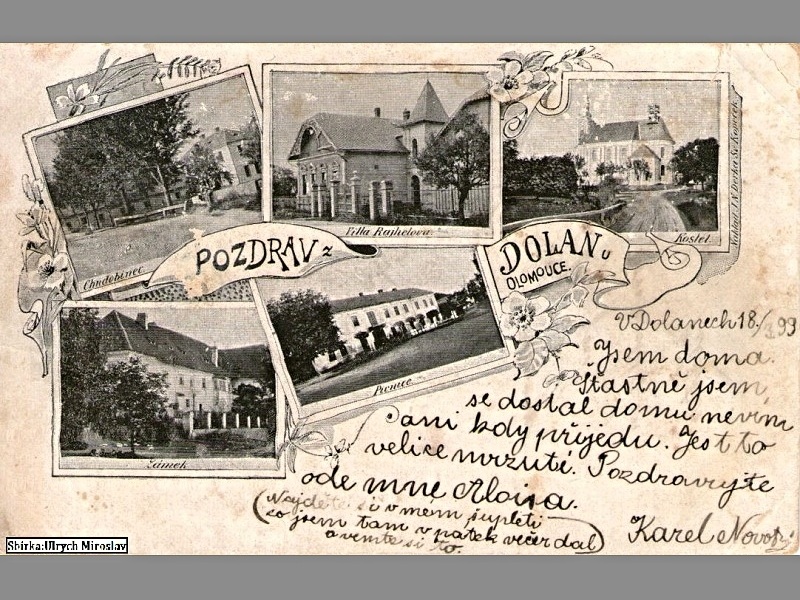 Chudobinec
Villa Rajhelova.
Kostel.
Náklad J. N. Decker Sv. Kopeček.
POZDRAV z
DOLAN u
OLOMOUCE.
Zámek
Pivnice
V Dolanech 18/ 99
Jsem doma.
Šťastně jsem
se dostal domu nevím
ani kdy přijedu. Jest to
velice mrzuté. Pozdravujte
ode mne Aloisa.
(Najděte si v mém šupleti
co jsem tam v pátek večer dal)
a vemte si to.
Karel Novotný
Sbirka:Ulrych Miroslav